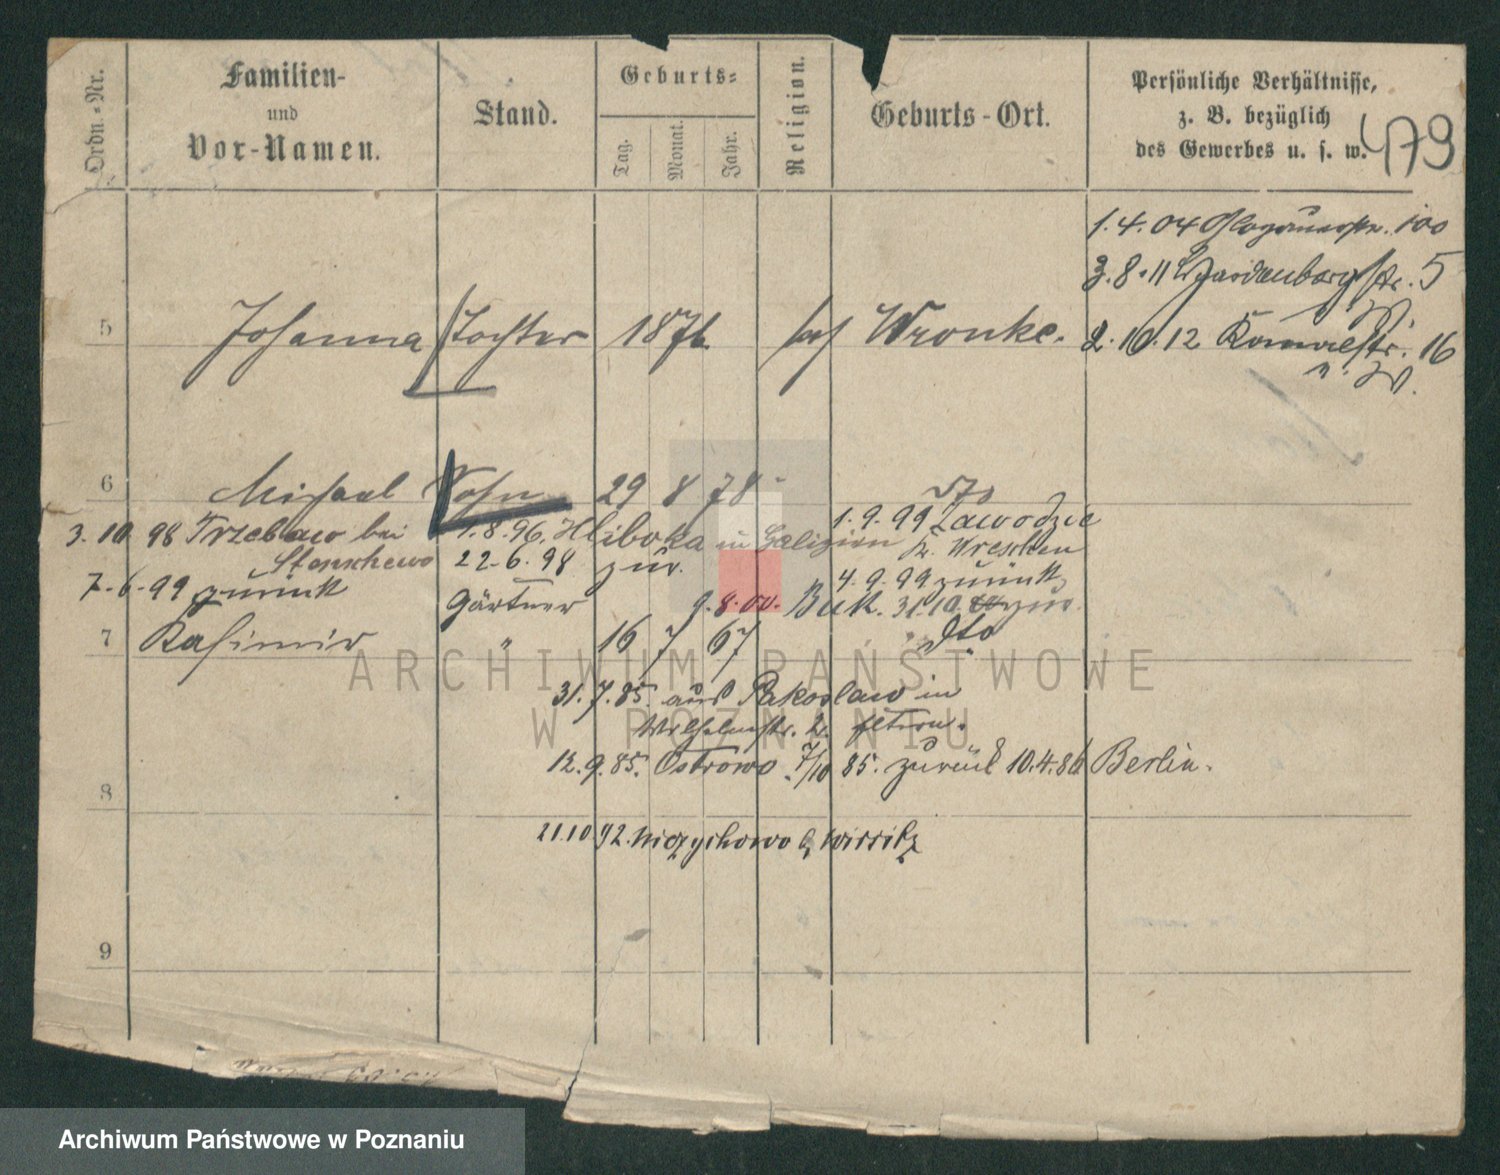 Ordn.-Nr.
Familien-
und
Vor-Namen.
Stand.
Geburts-
Tag.
Monat.
Jahr.
Religion.
Geburts-Ort.
Persönliche Verhältnisse,
z. B. bezüglich
des Gewerbes u. s. w.
479
1.4.04 Glogauerstr. 100
3.8.11 Gardenbergstr. 5
5 Johanna Tochter 1876 Wronke.
2.10.12 16
6 Michael Sohn 29 8 78 dto
3.10.98 Trzebaw bei
Stenschewo
1.8.96. Hliboka in Galizien
22.6.98 zur.
1.9.99 Zawodzie
Kr. Wreschen
4.9.99 zurück
7.6.99 zurück
Gärtner
9.8.00. Buk. 31.10. zur.
7 Kasimir " 16 7 67 dto
31.7.85. aus Pakoslaw in
Wilhelmstr. 2. Eltern.
12.9.85. Ostrowo. 7/10 85. zurück 10.4.86 Berlin.
8
21.10 92. Niezychowo b/ Wirsitz
9
ARCHIWUM PAŃSTWOWE
W POZNANIU
Archiwum Państwowe w Poznaniu